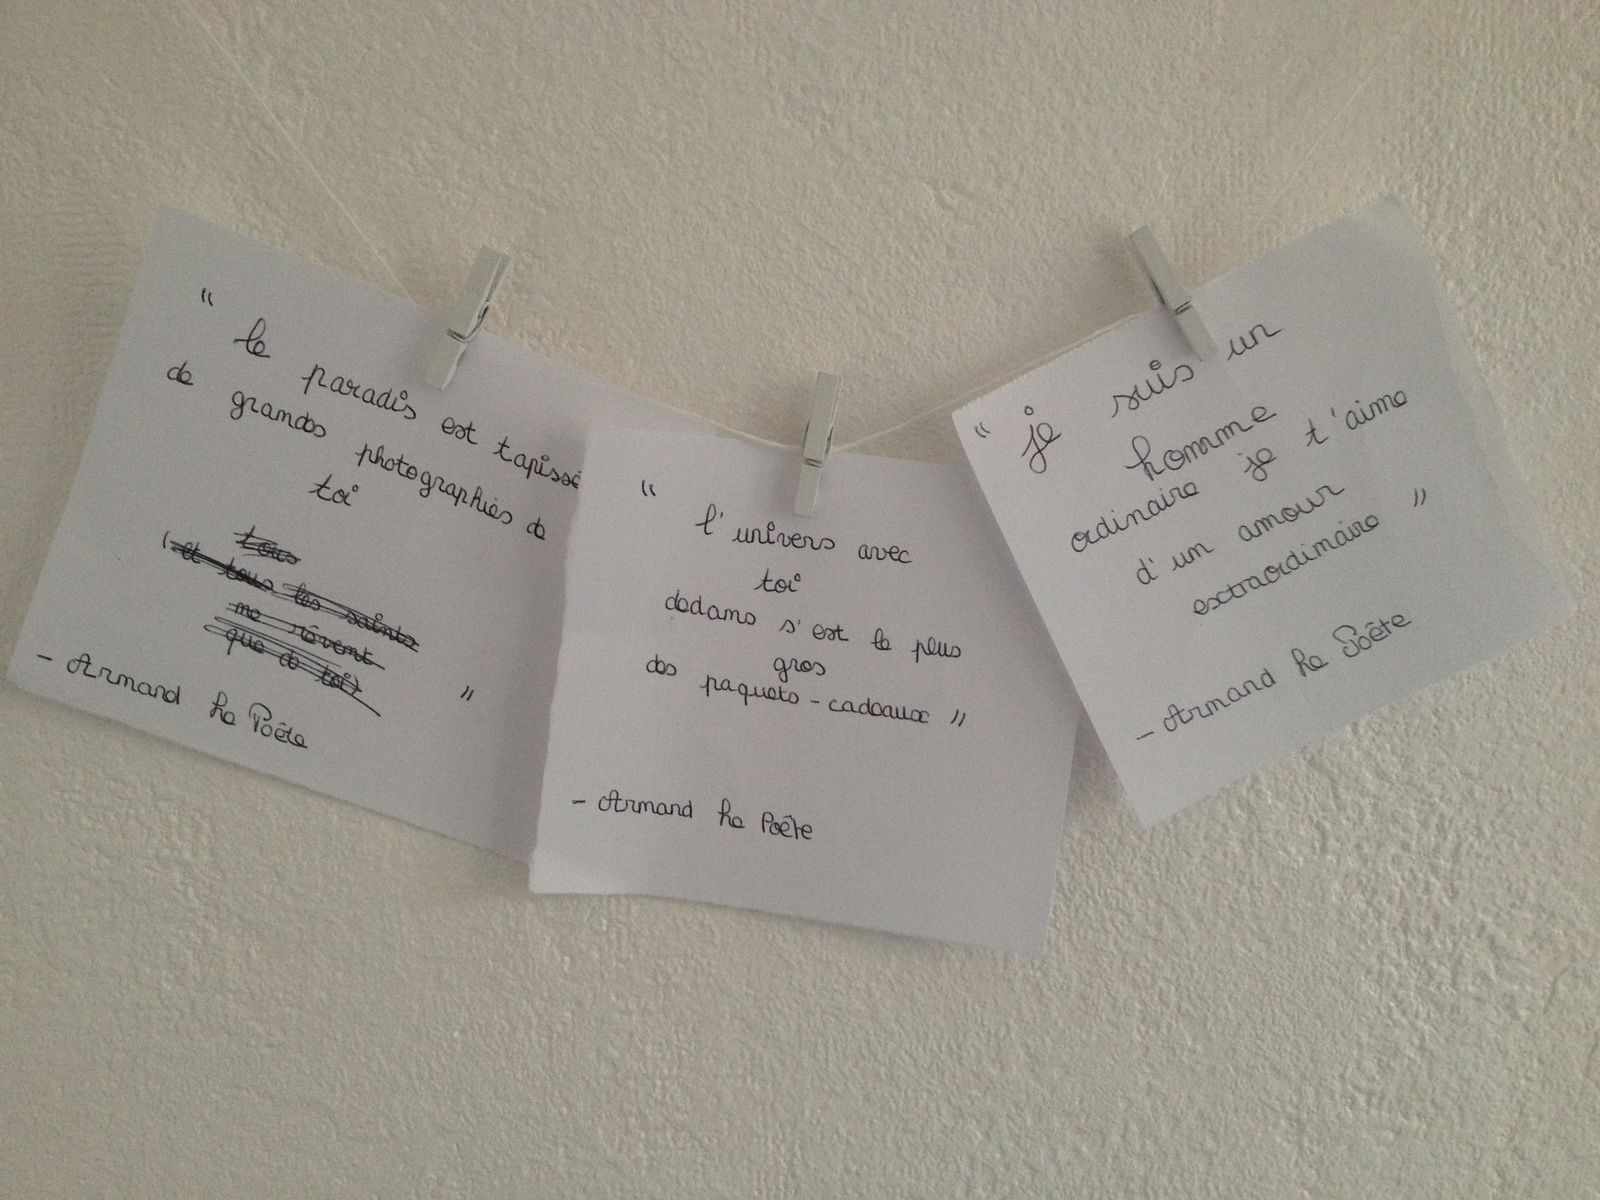 "
le paradis est tapissé
de grandes photographies de
toi
tous
(et tous les saints
ne rêvent
que de toi) "
- Armand Le Poête
"
l'univers avec
toi
dedans s'est le plus
gros
des paquets - cadeaux "
- Armand Le Poête
" je suis un
homme
ordinaire je t'aime
d'un amour
extraordinaire "
- Armand Le Poête